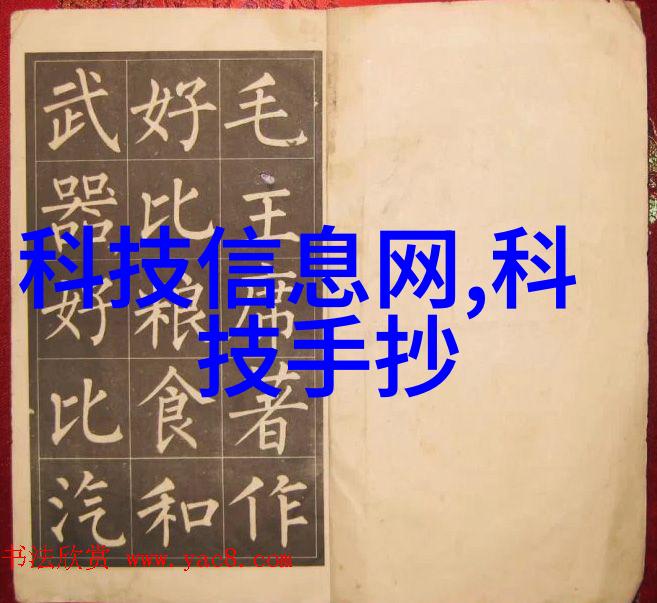 毛主席著作
好比粮食和
武器好比汽
科技信息网,科
技手抄
书法欣赏 www.yac8.com